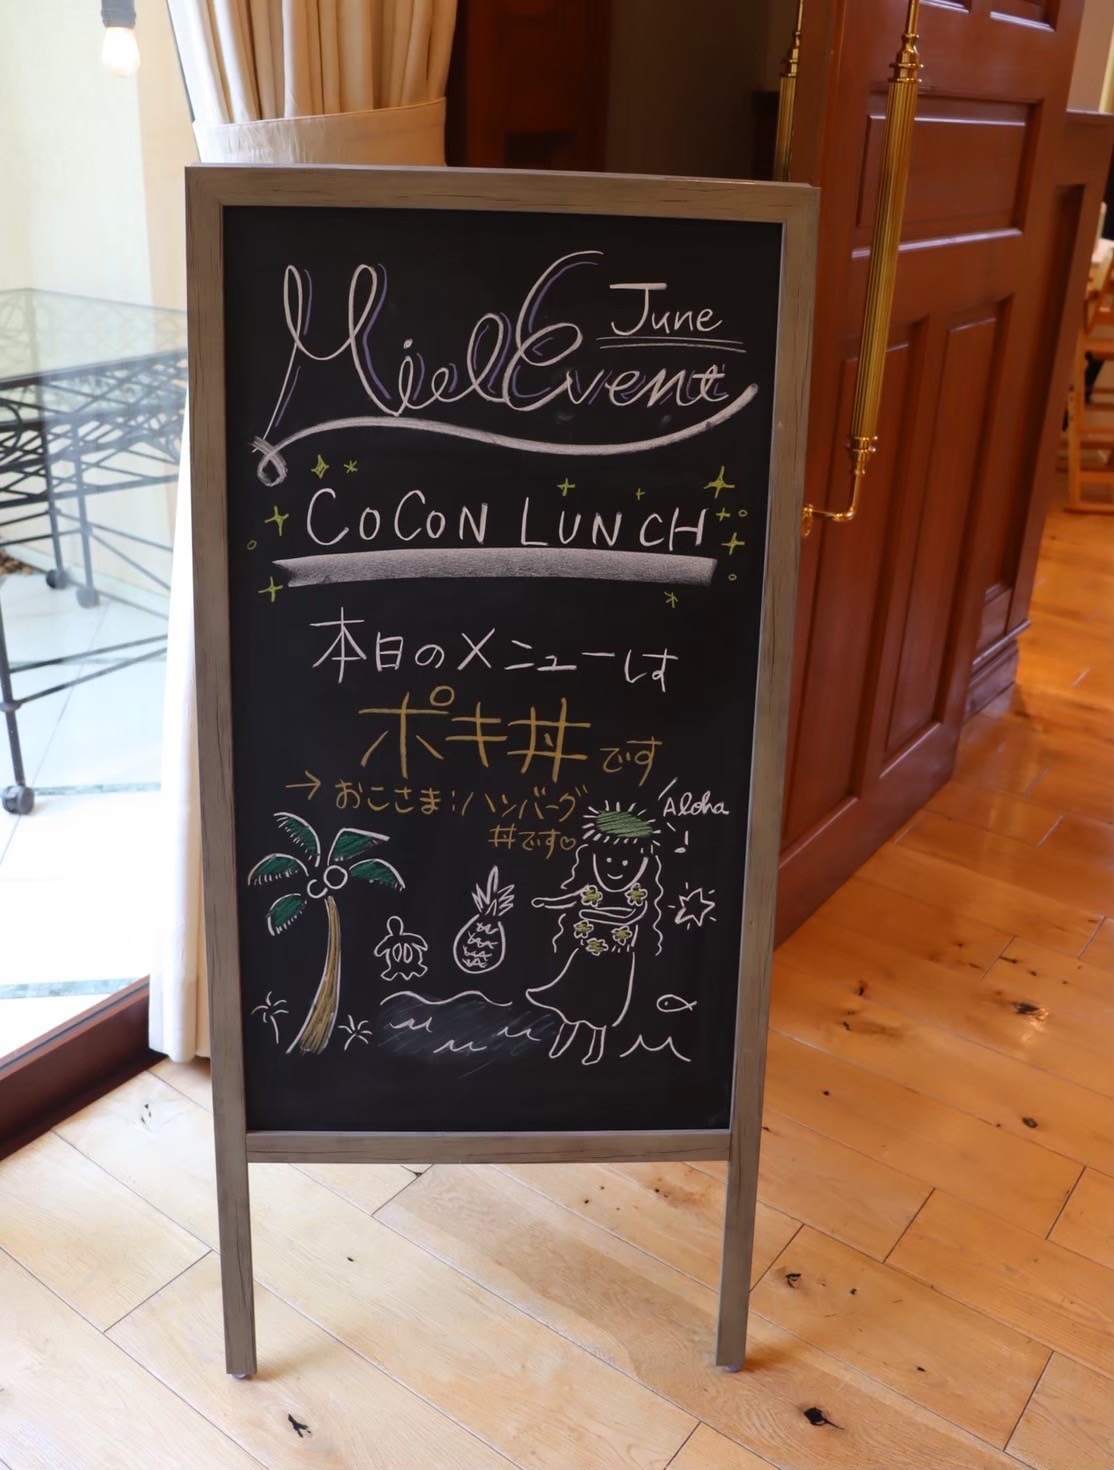 Miel Event June
COCON LUNCH
本日のメニューは
ポキ丼です
→ おこさま:ハンバーグ
丼です♡
Aloha